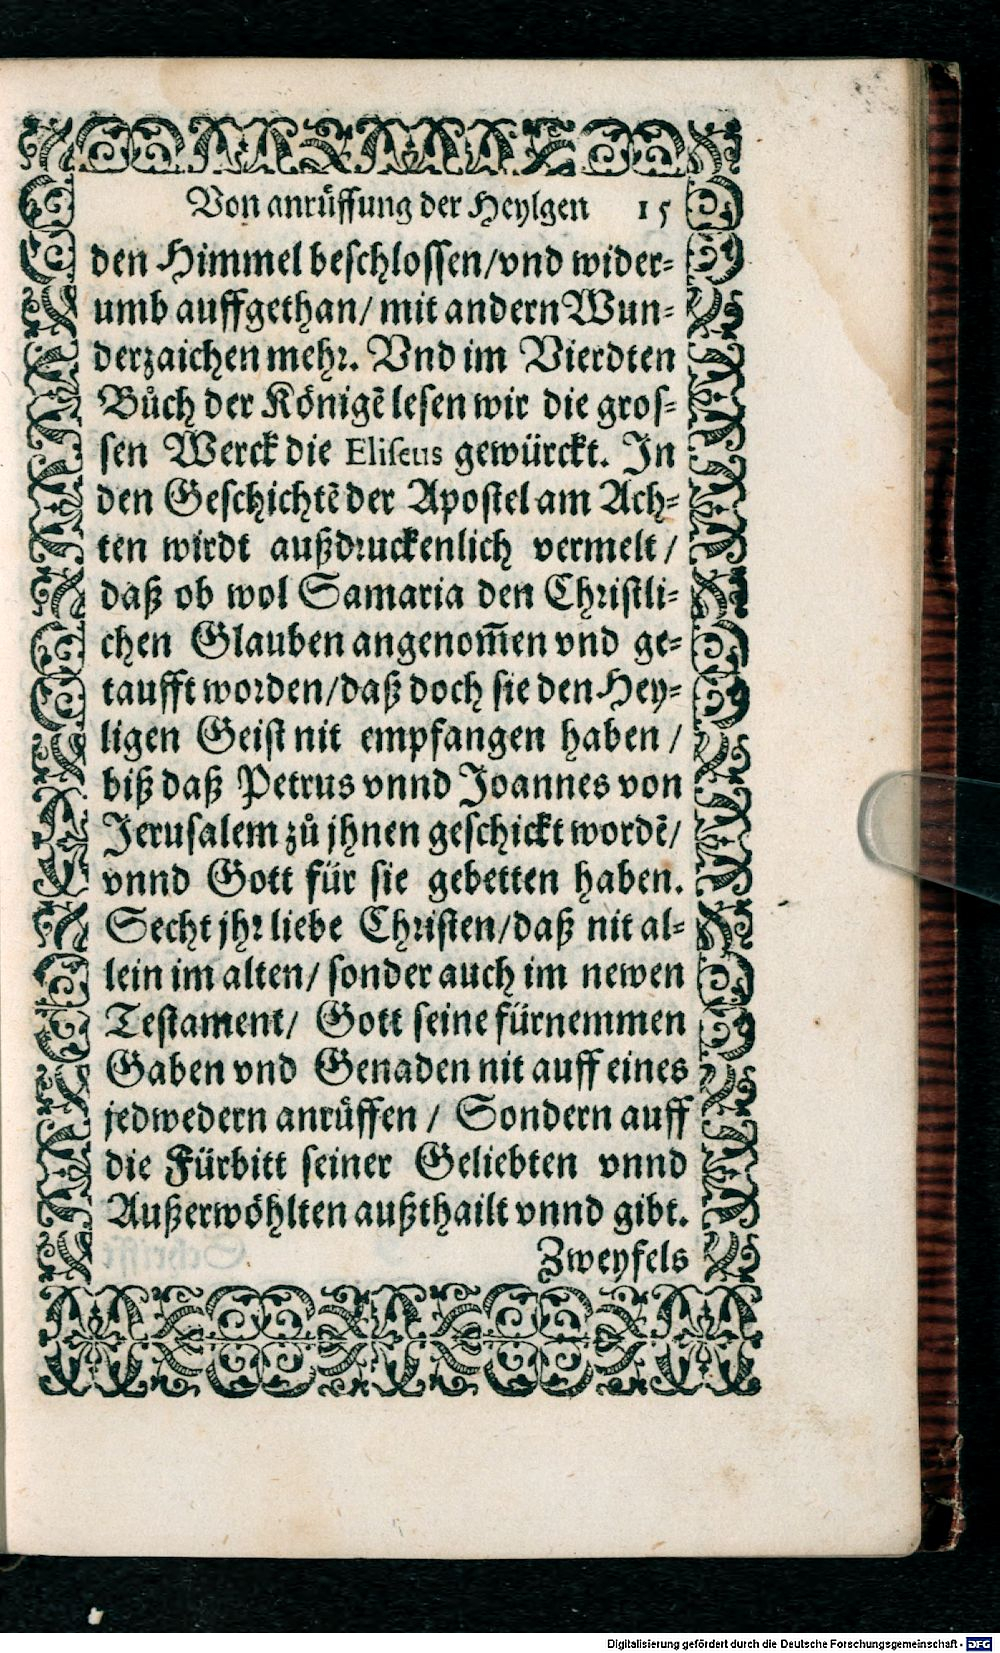 Von anrüffung der Heylgen 15
den Himmel beschlossen/vnd wider-
umb auffgethan/ mit andern Wun-
derzaichen mehr. Vnd im Vierdten
Bůch der Königẽ lesen wir die gros-
sen Werck die Eliseus gewürckt. In
den Geschichtẽ der Apostel am Ach-
ten wirdt außdruckenlich vermelt/
daß ob wol Samaria den Christli-
chen Glauben angenom̃en vnd ge-
taufft worden/daß doch sie den Hey-
ligen Geist nit empfangen haben/
biß daß Petrus vnnd Joannes von
Jerusalem zů jhnen geschickt wordẽ/
vnnd Gott für sie gebetten haben.
Secht jhr liebe Christen/daß nit al-
lein im alten/ sonder auch im newen
Testament/ Gott seine fürnemmen
Gaben vnd Genaden nit auff eines
jedwedern anrüffen/ Sondern auff
die Fürbitt seiner Geliebten vnnd
Außerwöhlten außthailt vnnd gibt.
Zweyfels
Digitalisierung gefördert durch die Deutsche Forschungsgemeinschaft - DFG